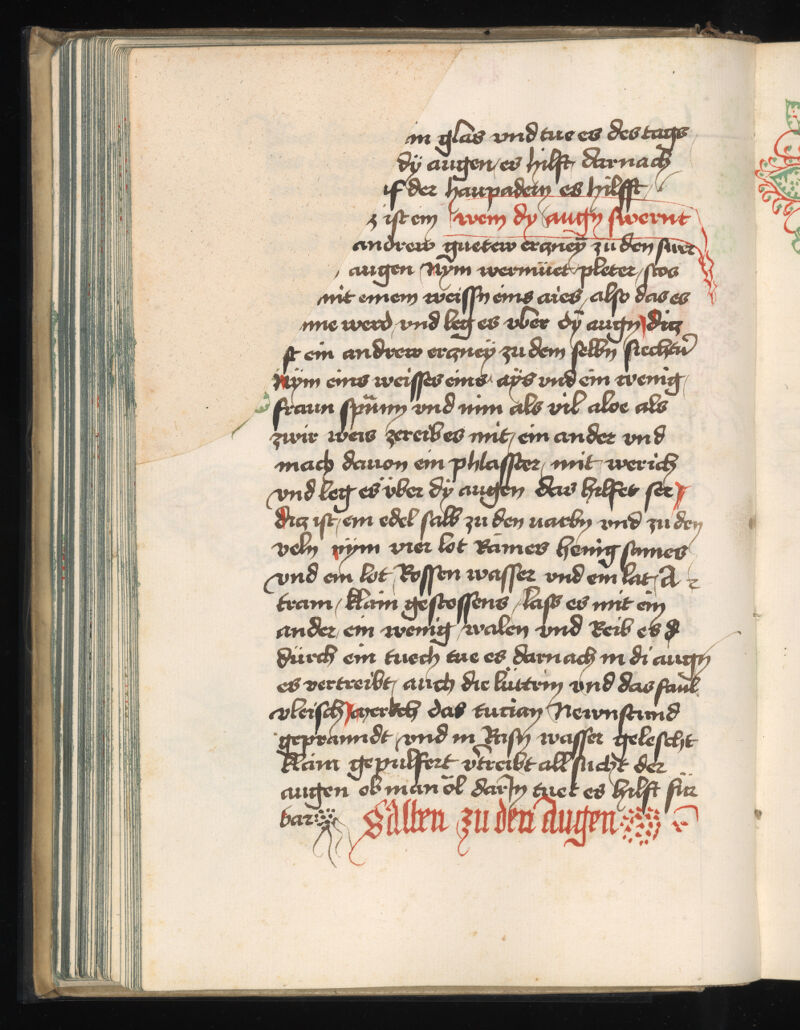 in glas vnd tue es des tags
dÿ augen es hilft darnach
if der haupadern es hilfft
z ist ein wem dy augn swernt
andrew guetew erczneÿ zu den swer
augen Nÿm wermüet pleter stos
mit einem weissn eins aies also das es
nne werd vnd leg es vber dÿ augn dicz
st ein andrew erczneÿ zu dem selbn siechtu̅
Nÿm eins weisses eins aÿs vnd ein wenig
frawn spünn vnd nim als vil aloe als
zwir weis zereib es mit ein ander vnd
mach dauon ein phlasster mit werich
vnd leg es über dÿ augen das hilfet ser
dicz ist ein edel salb zu den vatbn vnd zu den
veln nÿm vier lot Raines henig sames
vnd ein lot Rossen wasser vnd ein lat A
tram klain gestossens lass es mit ein
ander ein wenig walen vnd Reib es d
dürch ein tuech tue es darnach in di augn
es vertreibt auch die lüttrin vnd das faul
vleisch merkch das tucian Newnstund
gepranndt vnd in Rasn wasser gelescht
klain gepulfert vtreibt all sucht der
augen ob man öl darin tuet es hilft für
bar Salben zu den Augen